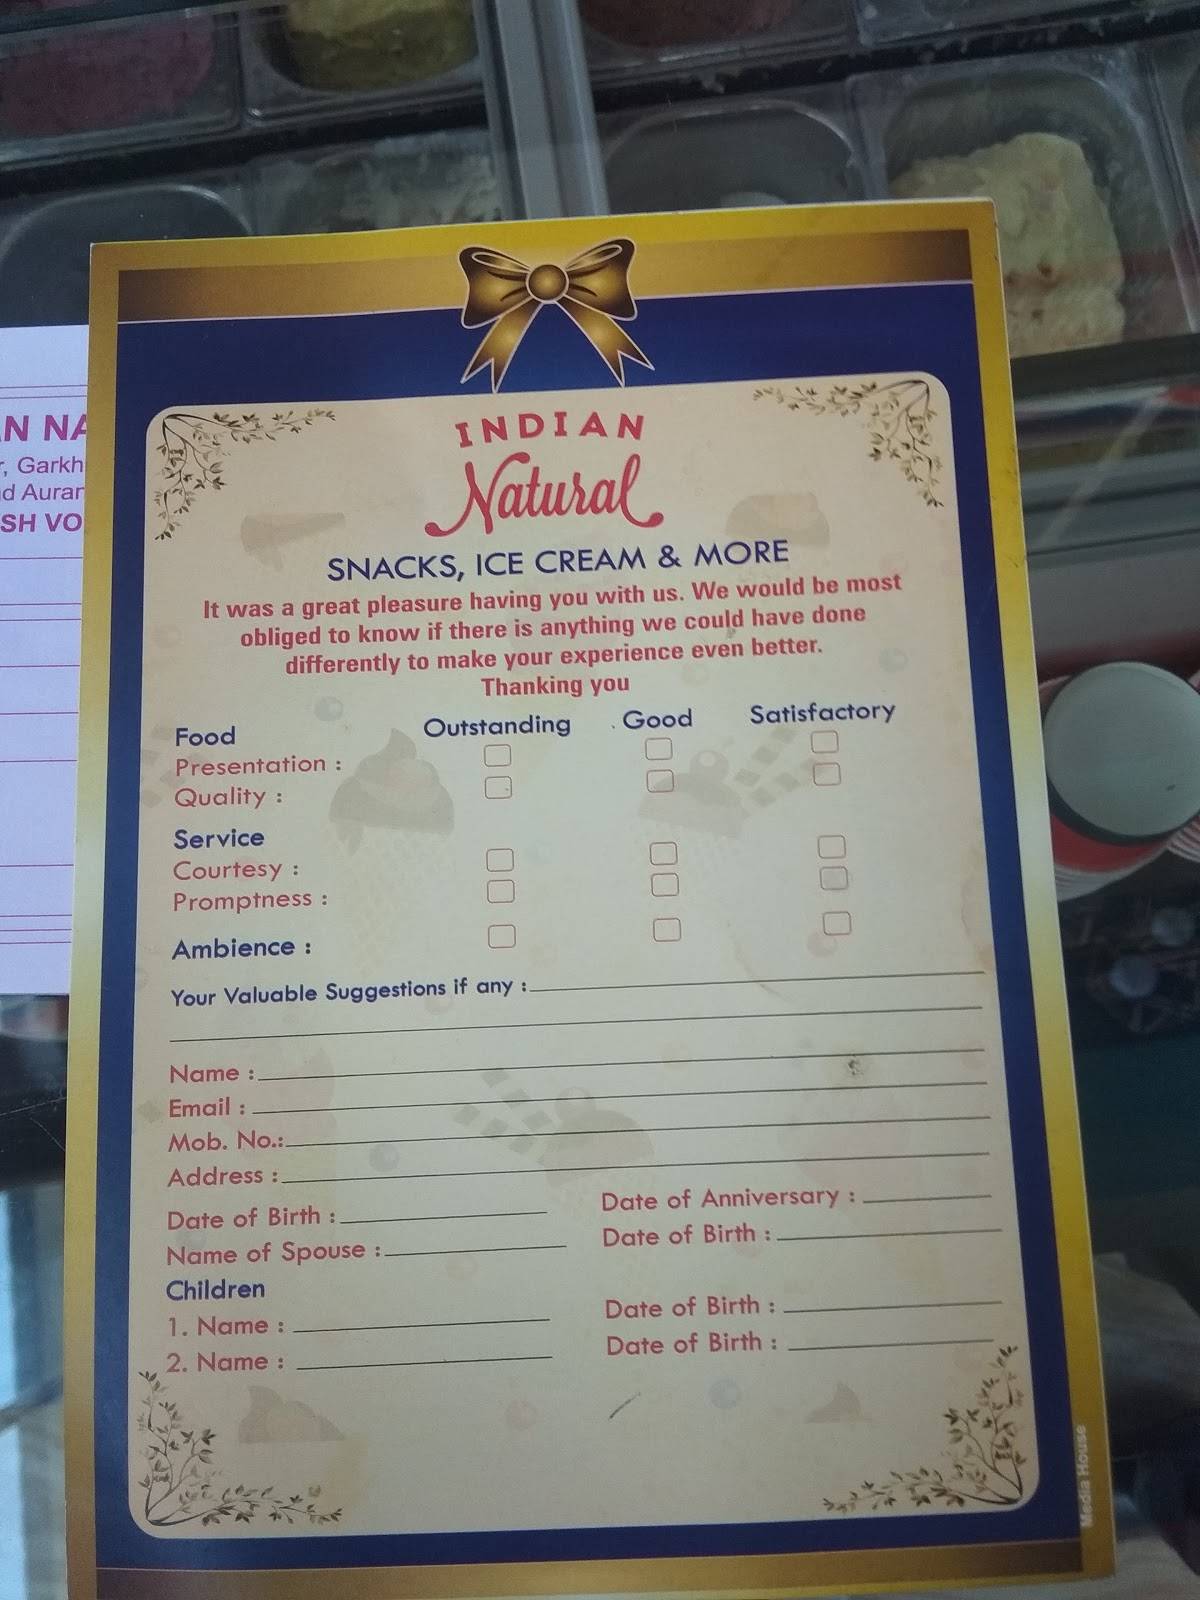 INDIAN
Natural
SNACKS, ICE CREAM & MORE
It was a great pleasure having you with us. We would be most
obliged to know if there is anything we could have done
differently to make your experience even better.
Thanking you
Food Outstanding Good Satisfactory
Presentation :
Quality :
Service
Courtesy :
Promptness :
Ambience :
Your Valuable Suggestions if any :
Name :
Email :
Mob. No.:
Address :
Date of Birth : Date of Anniversary :
Name of Spouse : Date of Birth :
Children
1. Name : Date of Birth :
2. Name : Date of Birth :
Media House
N NA
, Garkh
d Auran
SH VO